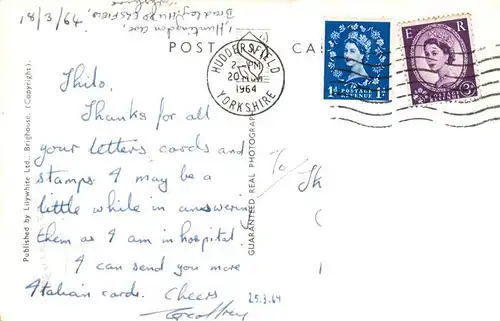 1 Huntingdon Ave,
Bradley, HUDDERSFIELD,
18/3/64
POST CA
HUDDERSFIELD
2-PM
20 MCH
1964
YORKSHIRE
1D POSTAGE REVENUE 1D
E R
POSTAGE REVENUE
Shilo,
Thanks for all
your letters cards and
stamps I may be a
little while in answering
them as I am in hospital
I can send you more
Italian cards. Cheers
Geoffrey
25.3.64
To
Sh
Published by Lilywhite Ltd., Brighouse. (Copyright).
GUARANTEED REAL PHOTOGRAPH